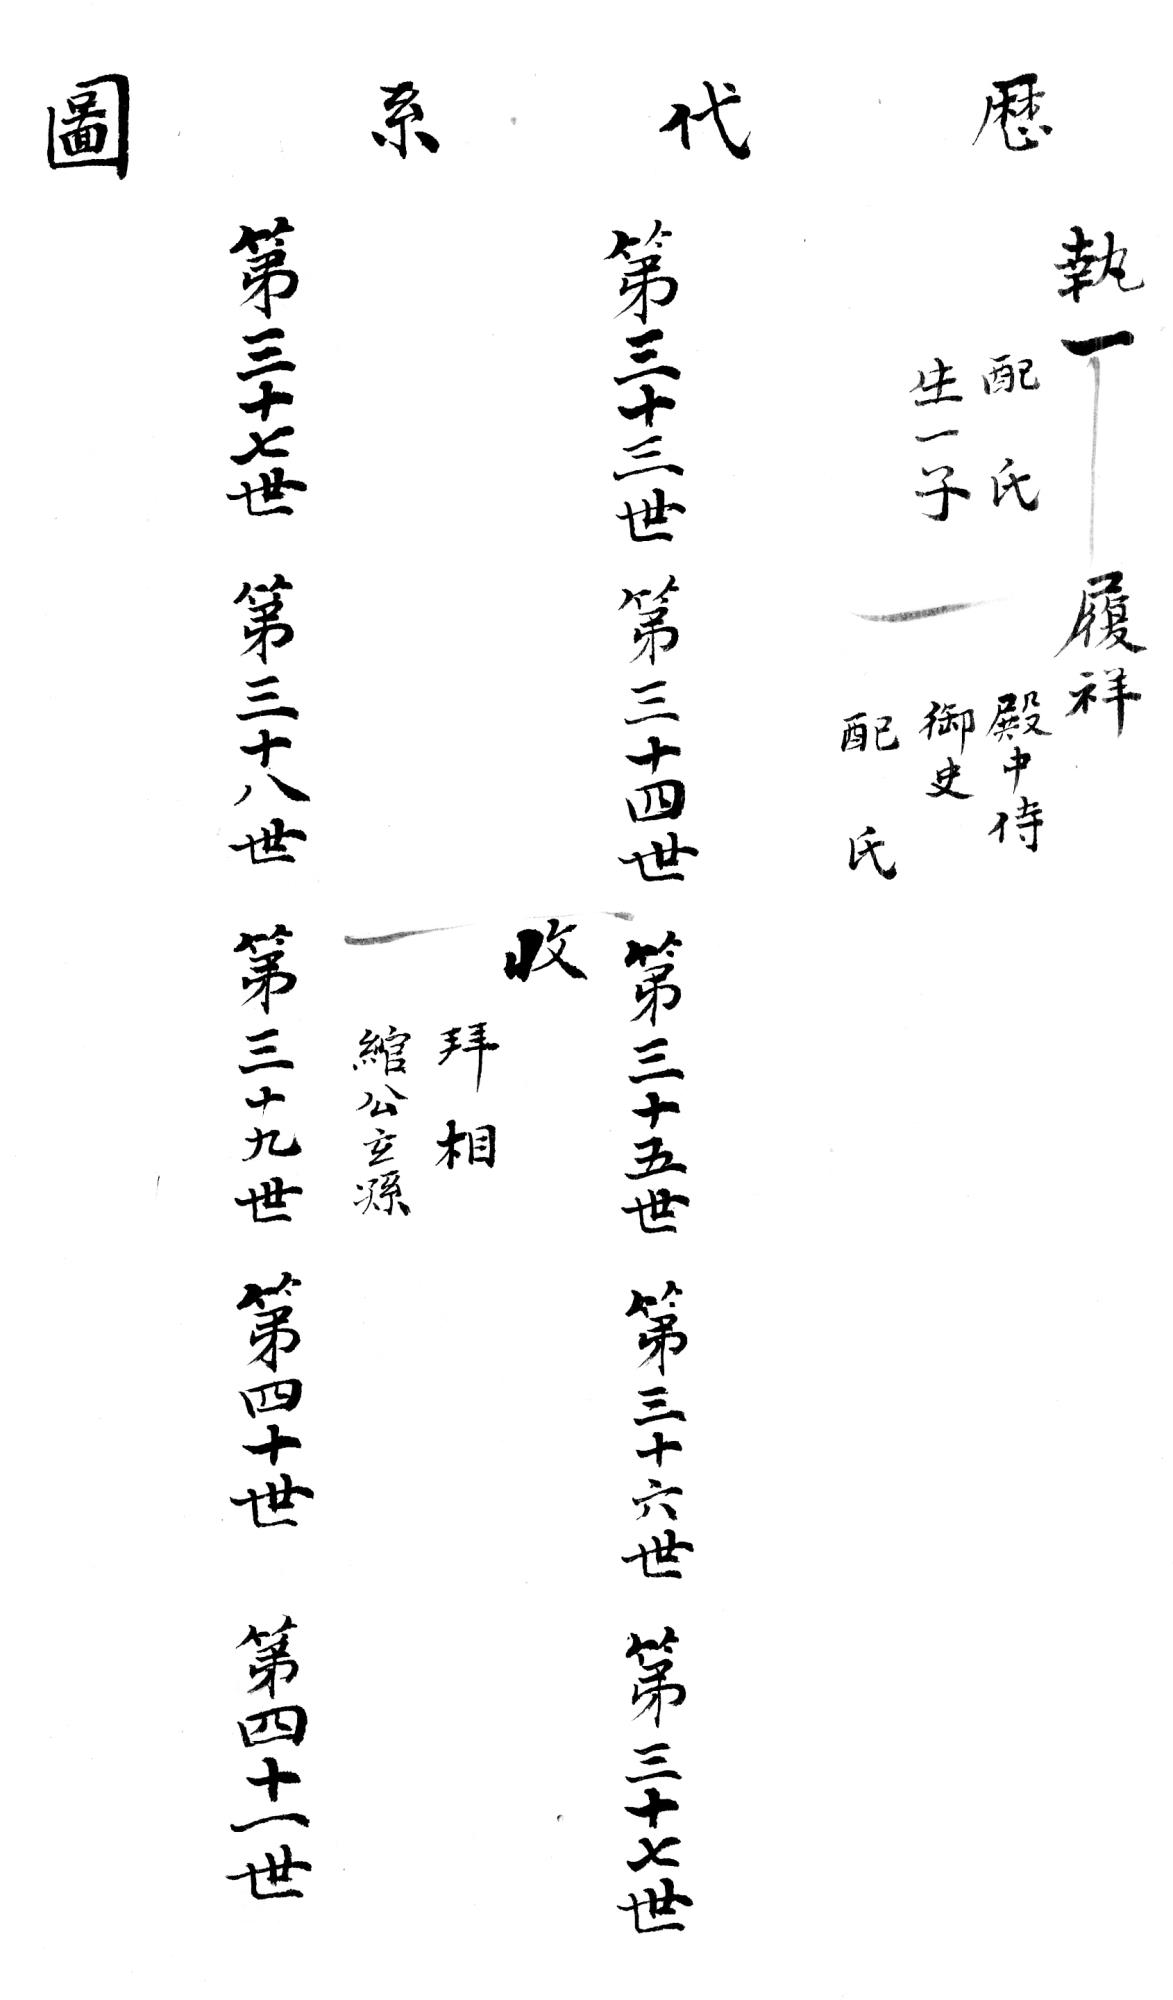 歷代系圖
執一
配 氏
生一子
履祥
殿中侍
御史
配 氏
第三十三世
第三十四世
第三十五世
第三十六世
第三十七世
收
拜相
綰公玄孫
第三十七世
第三十八世
第三十九世
第四十世
第四十一世